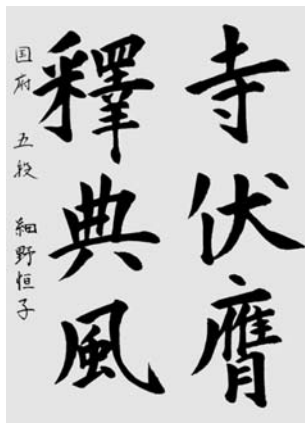 寺伏膺
釋典風
国府 五段 細野恒子